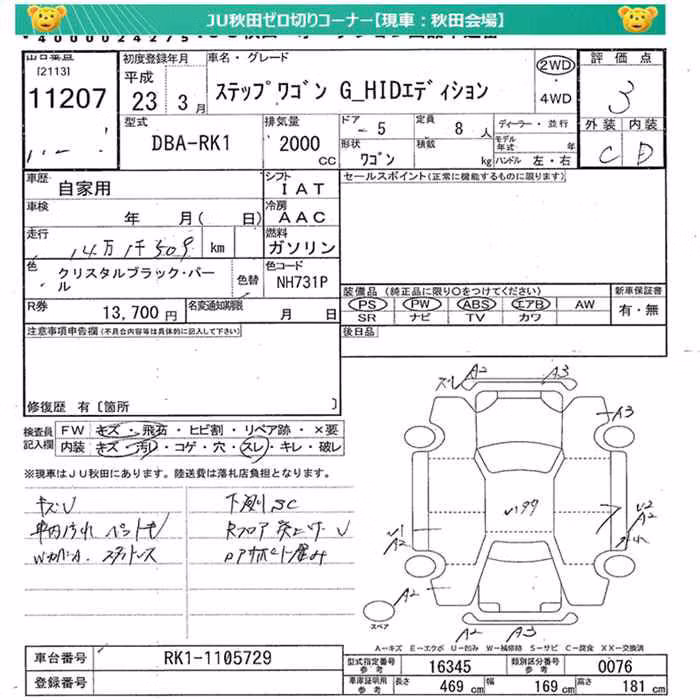 JU秋田ゼロ切りコーナー【現車：秋田会場】
[2113]
11207
初度登録年月
平成
23 3月
車名・グレード
ステップワゴン G_HIDエディション
2WD
4WD
評価点
3
外装 内装
C D
型式
DBA-RK1
排気量
2000
CC
ドア
- 5
定員
8 人
形状
ワゴン
積載
kg
ディーラー・並行
モデル年式 年
ハンドル 左・右
車歴
自家用
シフト
IAT
セールスポイント(正常に機能するものに限ります)
車検
年 月( 日)
冷房
AAC
走行
14万1千509 km
燃料
ガソリン
色
クリスタルブラック・パール
色替
色コード
NH731P
R券
13,700 円
名変通知期限
月 日
装備品(純正品に限り○をつけてください)
PS PW ABS エアB AW
SR ナビ TV カワ
新車保証書
有・無
後日品
注意事項申告欄(不具合内容等は具体的に記入して下さい)
修復歴 有〔箇所 〕
検査員記入欄
FW キズ・飛石・ヒビ割・リペア跡・×要
内装 キズ・汚れ・コゲ・穴・スレ・キレ・破レ
※現車はJU秋田にあります。陸送費は落札店負担となります。
キズU
下廻りSC
A2
A3
A3
A2
A2
A2
A3
スペア
A－キズ E－エクボ U－凹み W－補修跡 S－サビ C－腐食 XX－交換済
車台番号
RK1-1105729
登録番号
型式指定番号 参考
16345
類別区分番号 参考
0076
車庫証明用 参考
長さ 469 cm 幅 169 cm 高さ 181 cm